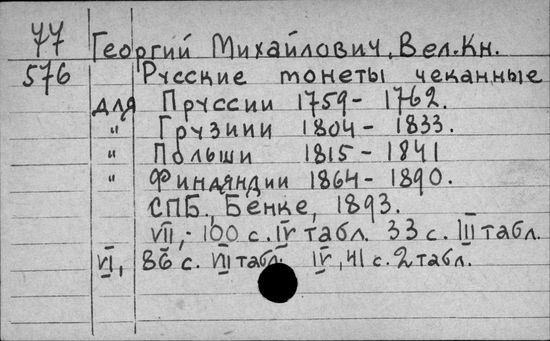 77 Георгий Михайлович, Вел. Кн.
576 Русские монеты чеканные
для Пруссии 1759 - 1762.
" Грузии 1804 - 1833.
" Польши 1815 - 1841
" Финляндии 1864 - 1890.
СПБ., Бенке, 1893.
VII, - 100 с. IV табл. 33 с. III табл.
VI, 86 с. VII табл. IV, 41 с. 2 табл.